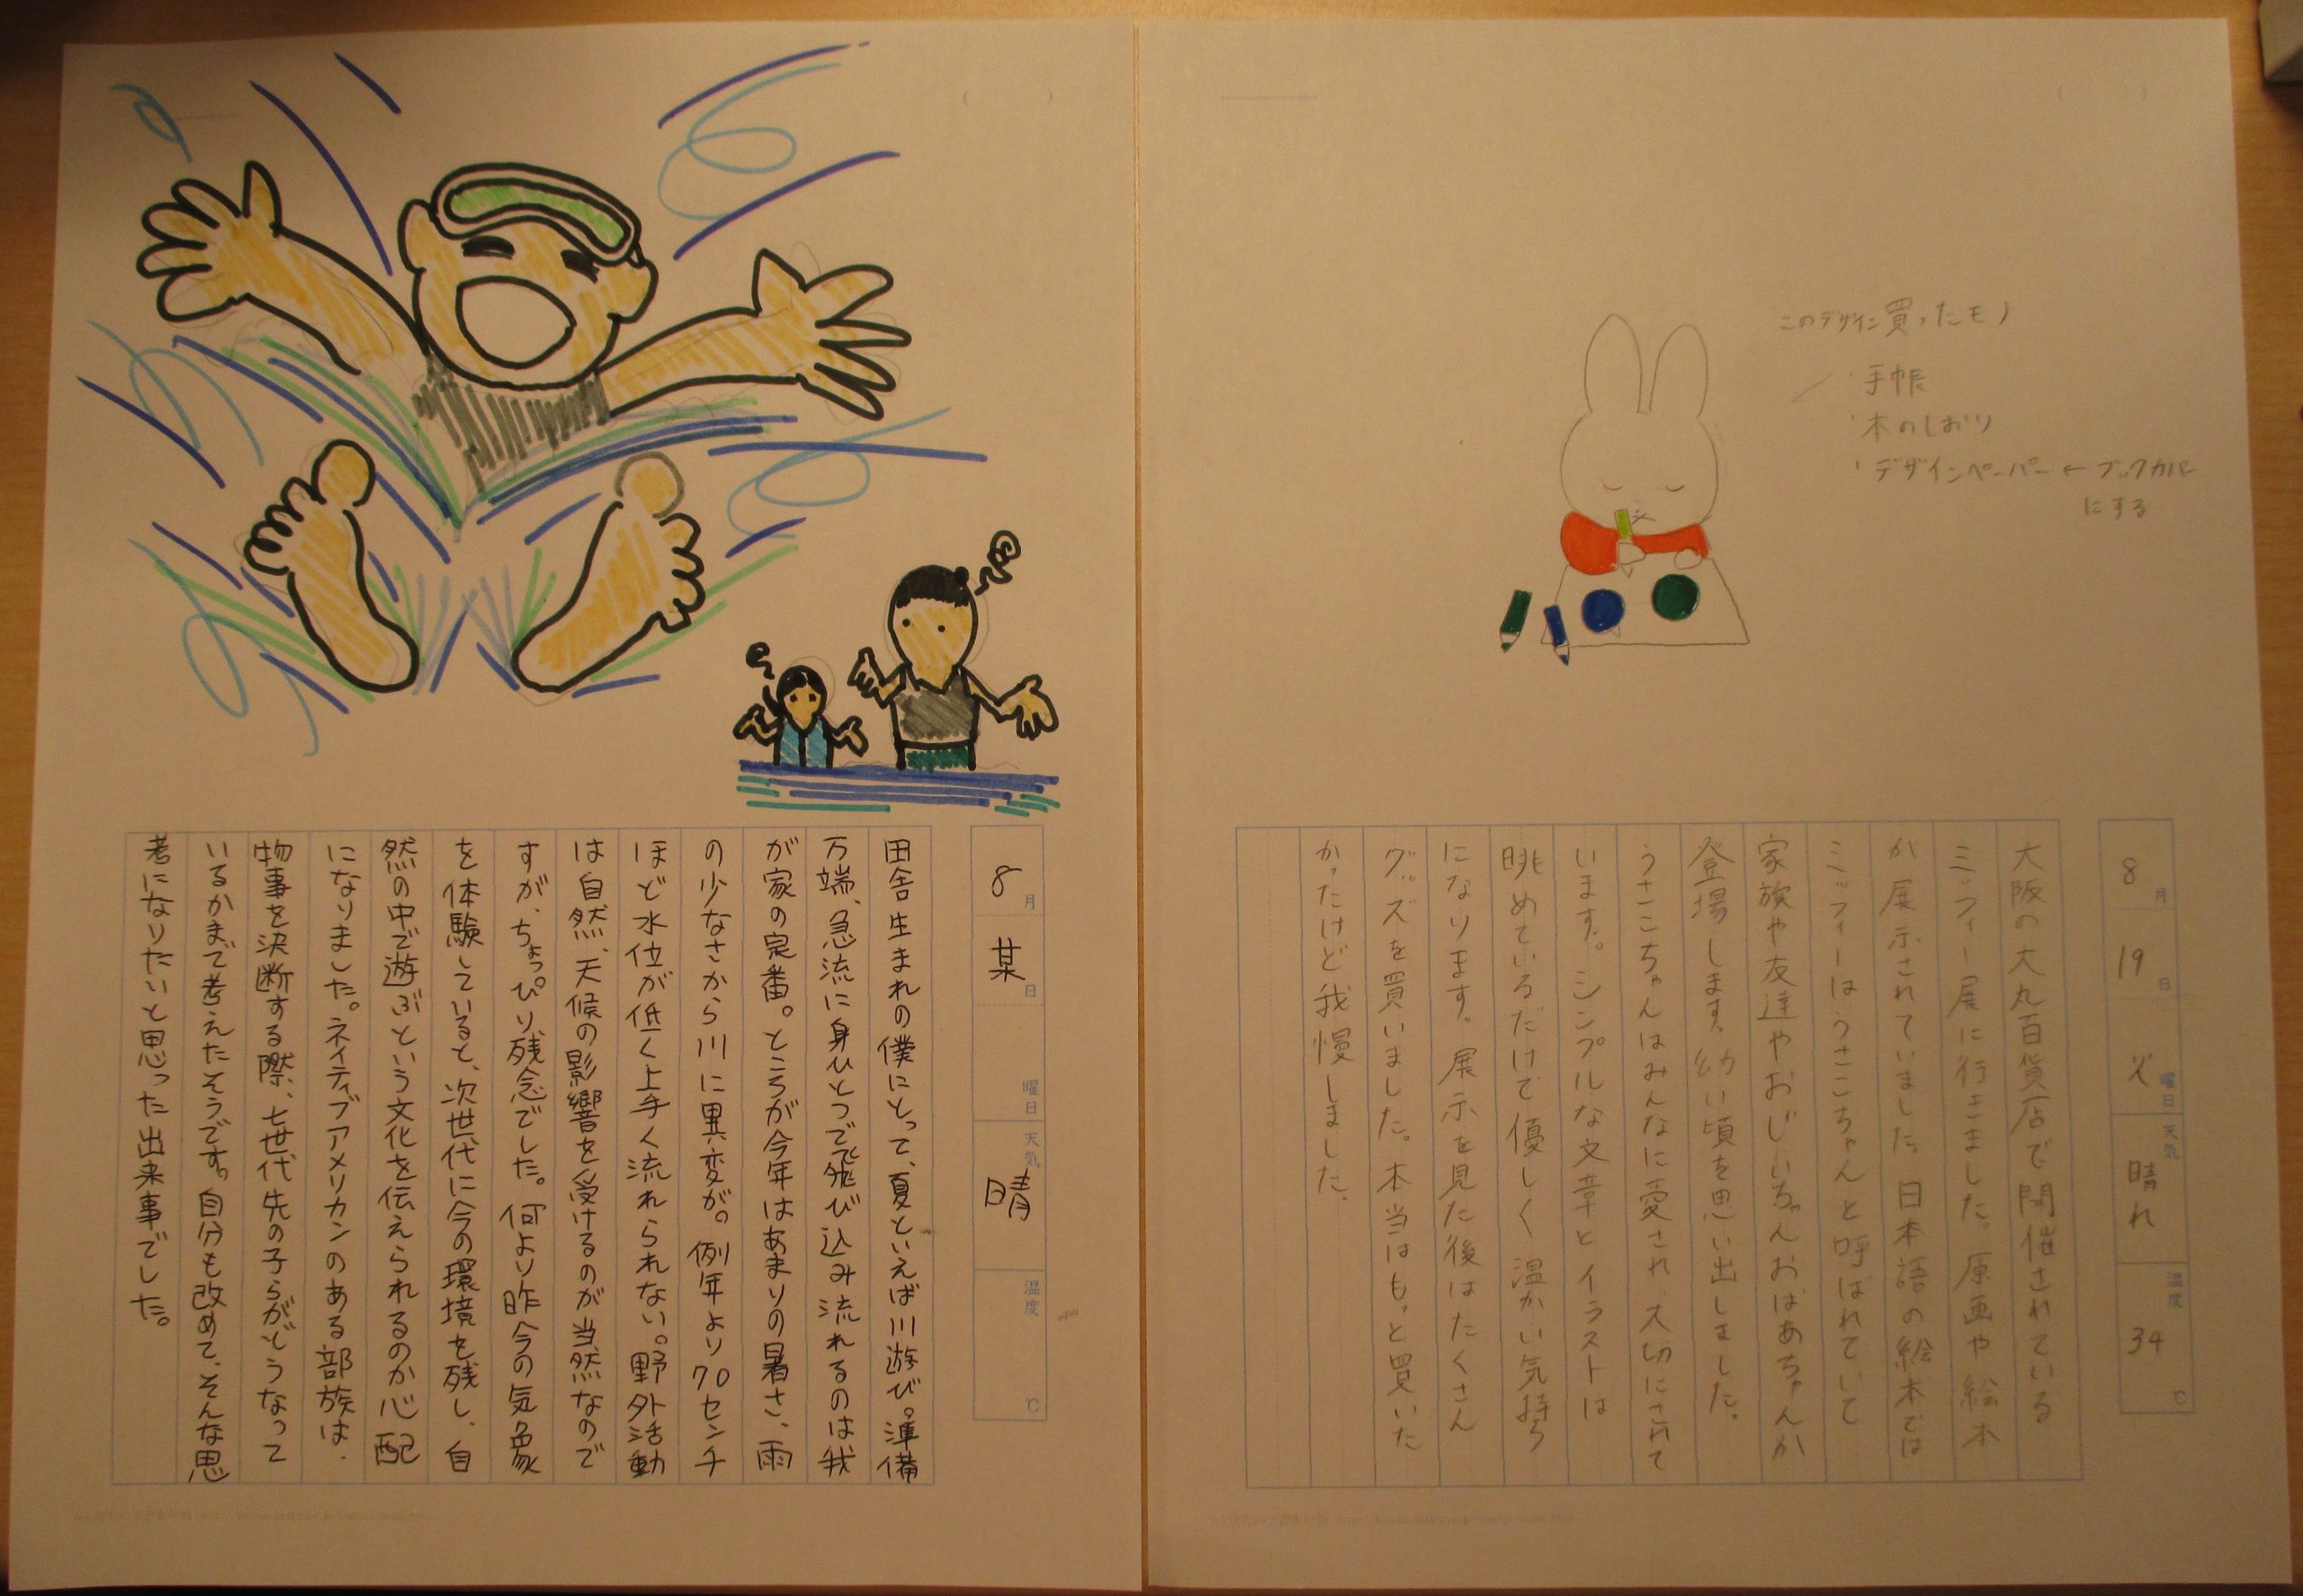 このデザイン買ったモノ
・手帳
・本のしおり
・デザインペーパー ← ブックカバー
にする
8月
19日
火曜日
天気
晴れ
温度
34
℃
大阪の大丸百貨店で開催されている
ミッフィー展に行きました。原画や絵本
が展示されていました。日本語の絵本では
ミッフィーはうさこちゃんと呼ばれていて
家族や友達やおじいちゃんおばあちゃんが
登場します。幼い頃を思い出しました。
うさこちゃんはみんなに愛され、大切にされて
います。シンプルな文章とイラストは
眺めているだけで優しく温かい気持ち
になります。展示を見た後はたくさん
グッズを買いました。本当はもっと買いた
かったけど我慢しました。
8月
某日
曜日
天気
晴
温度
℃
田舎生まれの僕にとって、夏といえば川遊び。準備
万端、急流に身ひとつで飛び込み流れるのは我
が家の定番。ところが今年はあまりの暑さ、雨
の少なさから川に異変が。例年より70センチ
ほど水位が低く上手く流れられない。野外活動
は自然、天候の影響を受けるのが当然なので
すが、ちょっぴり残念でした。何より昨今の気象
を体験していると、次世代に今の環境を残し、自
然の中で遊ぶという文化を伝えられるのか心配
になりました。ネイティブアメリカンのある部族は、
物事を決断する際、七世代先の子らがどうなって
いるかまで考えたそうです。自分も改めて、そんな思
考になりたいと思った出来事でした。